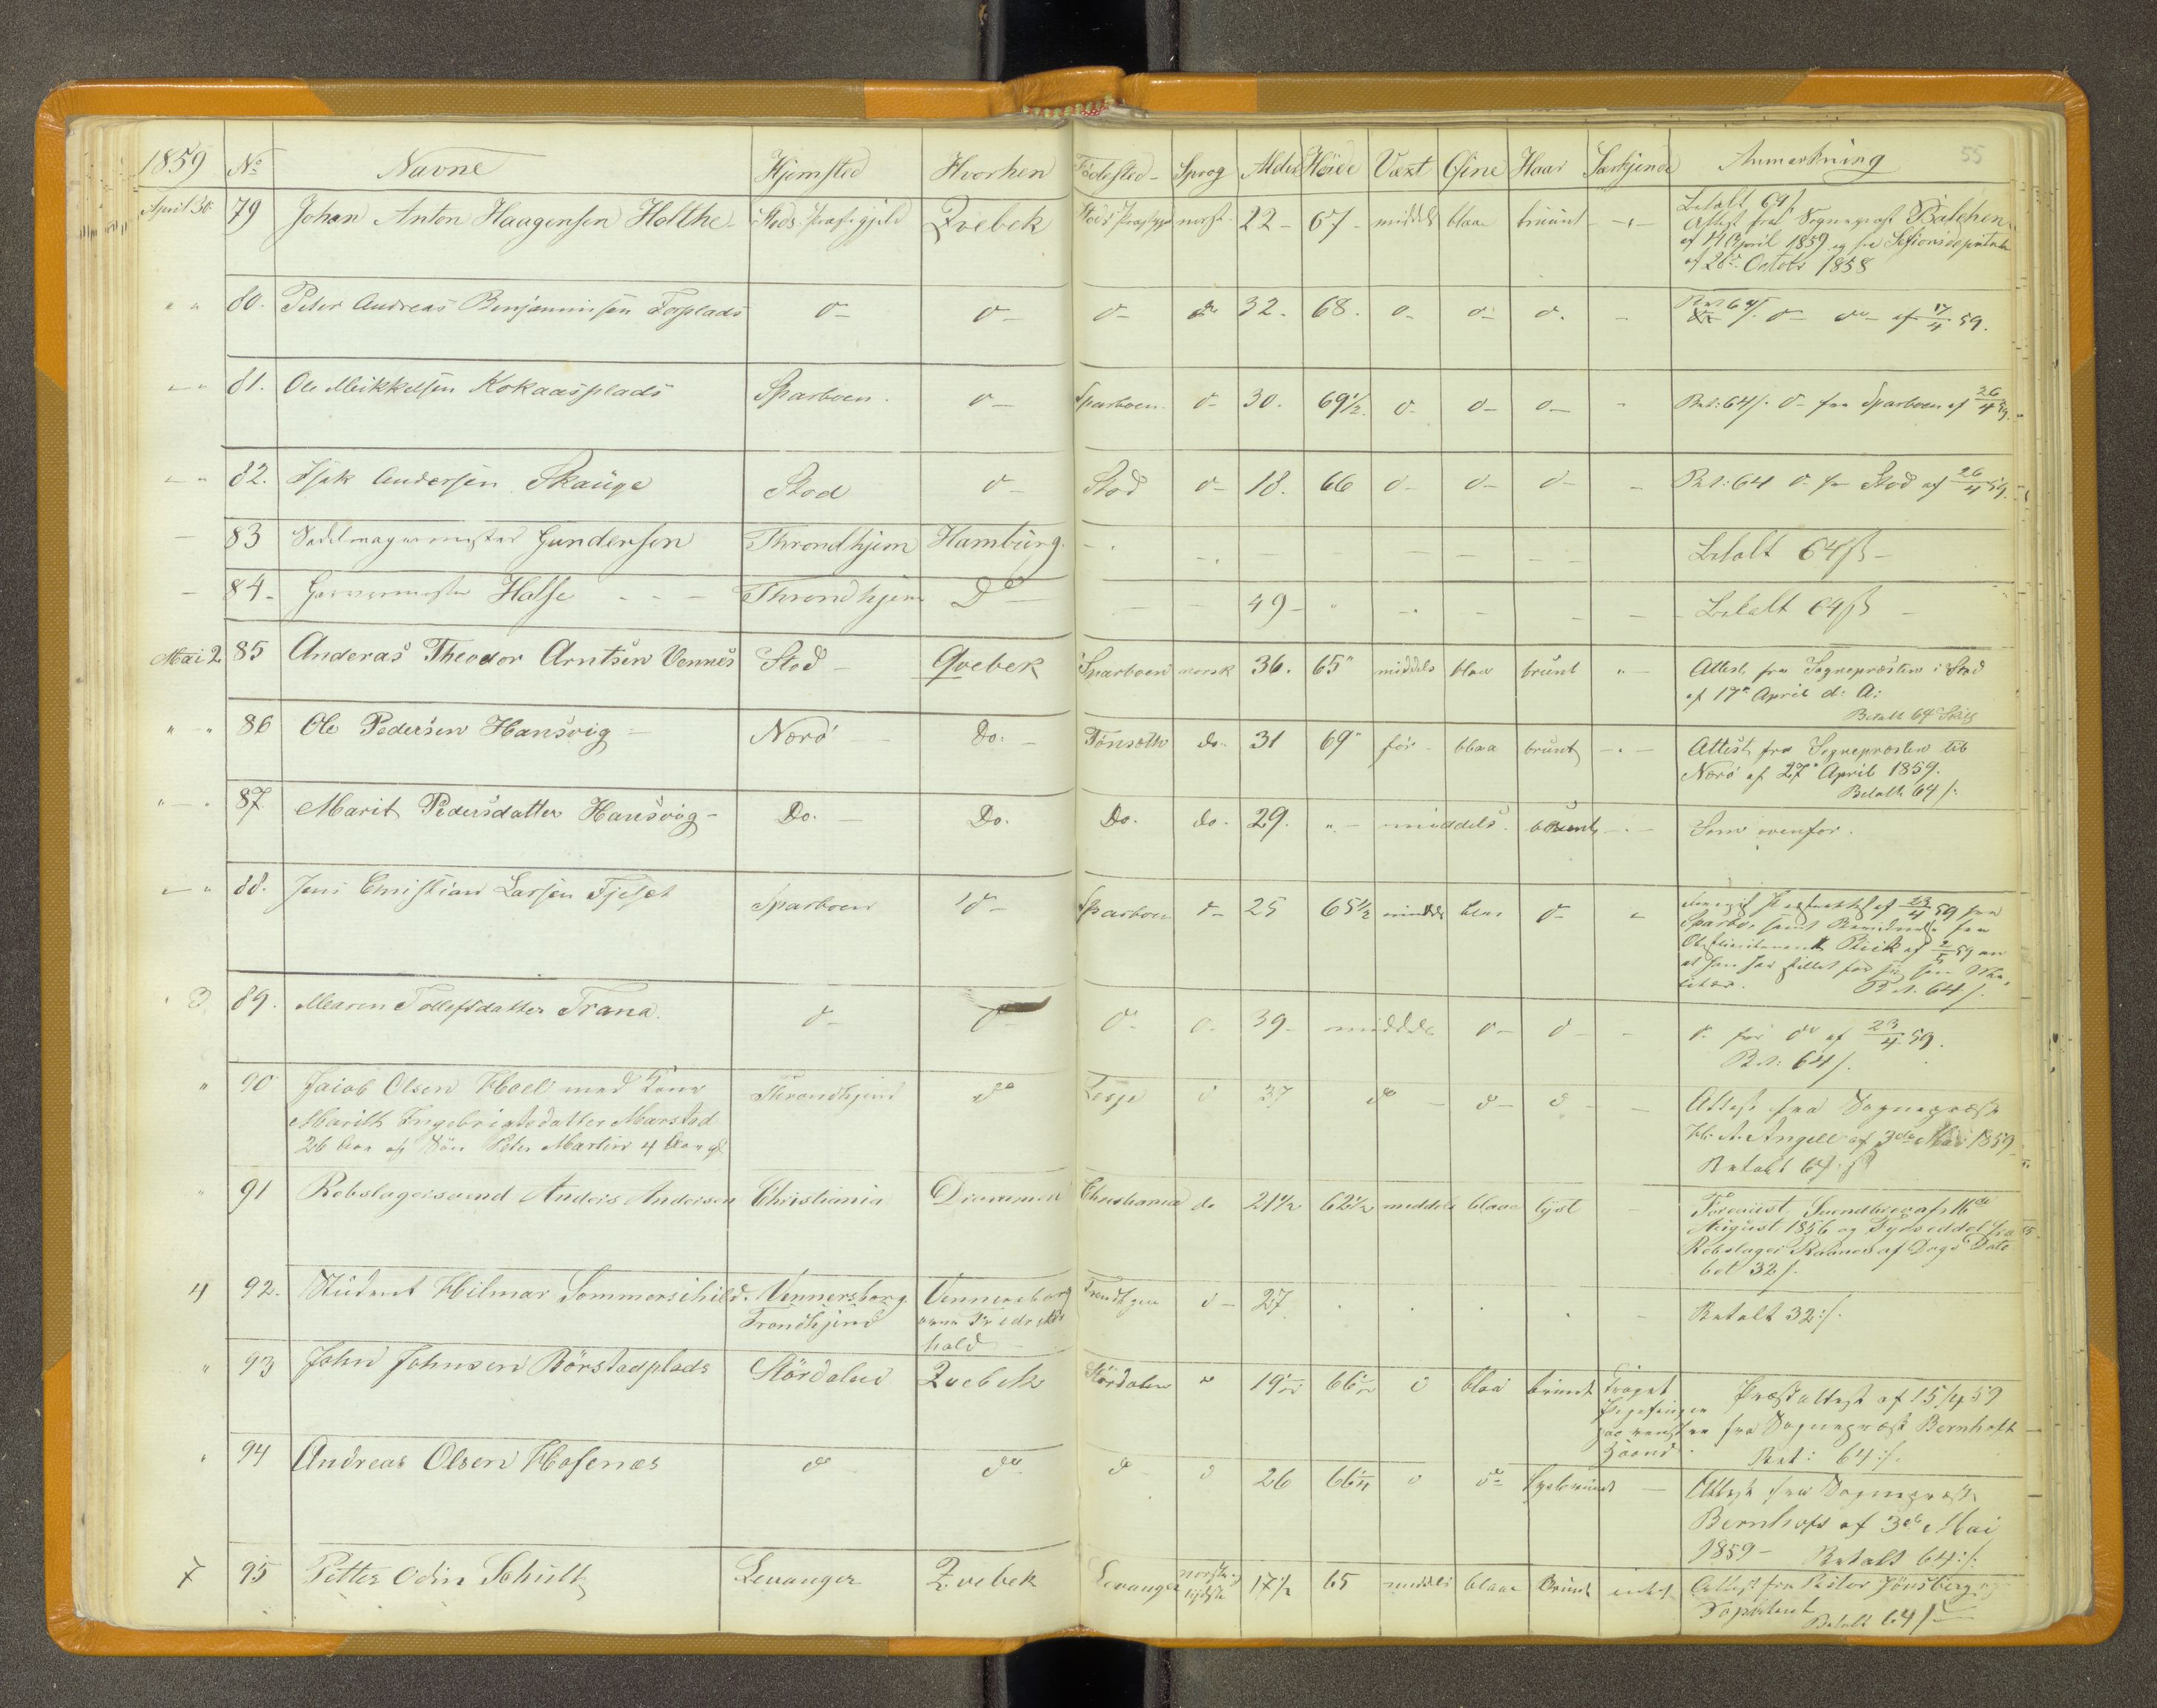 55
1859 No Navne Hjemsted Hvorhen Födested Sprog Alder Höide Væxt Öine Haar Særkjende Anmærkning
April 30 79 Johan Anton Haagensen Holthe Stods Præstegjeld Qvebek Stods Præstgjd norsk 22 67 middels blaa bruunt
Betalt 64 s
Attest fra Sognepræst Balchen
af 14 April 1859 og fra Sessionsdeputat
af 26de October 1858
" " 80. Peter Andreas Benjaminsen Forplads do do do do 32. 68. do do do
Bet 64 s. do do af 17/4 59.
" 81. Ole Mikkelsen Kokaasplads Sparboen. do Sparboen do 30. 69 1/2 do do do Bet: 64 s. do fra Sparboen af 26/4 59.
" 82. Isak Andersen Skauge Stod do Stod do 18. 66 do do do Bet: 64 do fra Stod af 26/4 59.
83 Sadelmagermester Gundersen Throndhjem Hamburg. Betalt 64 ß
84 Garvermester Halse Throndhjem Do 49 Betalt 64 ß
Mai 2 85 Anderas Theodor Arntsen Vennes Stod Qvebek Sparboen norsk 36. 65" middels blaa brunt
Attest fra Sognepræsten i Stod
af 17de April d: A:
Betalt 64 Skill
" " 86 Ole Pedersen Hansvig Nærö Do. Tönsæth do. 31 69" för blaa brunt
Attest fra Sognepræsten til
Nærö af 27de April 1859.
Betalt 64 s.
" " 87 Marit Pedersdatter Hansvig Do. Do. Do. do. 29. " middels. brunt Som ovenfor.
" 88. Jens Christian Larsen Fjeset Sparboen do Sparboen do 25 65 1/2 middels blaa do
af 23/4 59 fra
Sparbo, samt fra
af 2/5 59 om
at han har stillet for sig
Bet. 64 s.
3 89. Maren Tollefsdatter Trana. do do do do 39 middels do do
do fra do af 23/4 59.
Bet: 64 s.
" 90 Jacob Olsen Hoel med Kone
Marith Ingebrigtsdatter Marstad
26 Aar og Sön Peter Martin 4 Aar gl
Throndhjem do Lesje do 37 do do do
Attest fra Sognepræst
H. A. Angell af 3die Mai 1859
Betalt 64 ß
" 91 Rebslagersvend Anders Andersen Christiania Drammen Christiania do 21 1/2 62 1/2 middels blaae lyst
Foreviist Svendebrev af 16de
August 1856 og Synseddel fra
Rebslager af Dags Dato
bet 32 s.
4 92. Student Hilmar Sommerschild. Vennersborg
Trondhjem
Vennersborg
over Fredriks
hald
Trondhjem do 27 Betalt 32 s.
" 93 John Johnsen Börstadplads Stördalen Qvebek Stördalen do 19 1/2 66 1/2 do blaa brunt
Kroget
Pegefinger
paa venstre
Haand.
Præstattest af 15/4 59
fra Sognepræst Bernhoft
Bet: 64 s.
" 94 Andreas Olsen Hofsnæs do do do do 26 66 1/4 do do Lysbruunt
Attest fra Sognepræst
Bernhoft af 3die Mai
1859 Betalt 64 s.
7 95 Petter Odin Schult Levanger Qvebek Levanger norsk og
tydsk
17 1/2 65 middels blaae Bruunt intet
Attest fra Pastor Jönsberg og
Deputeret
Betalt 64 s